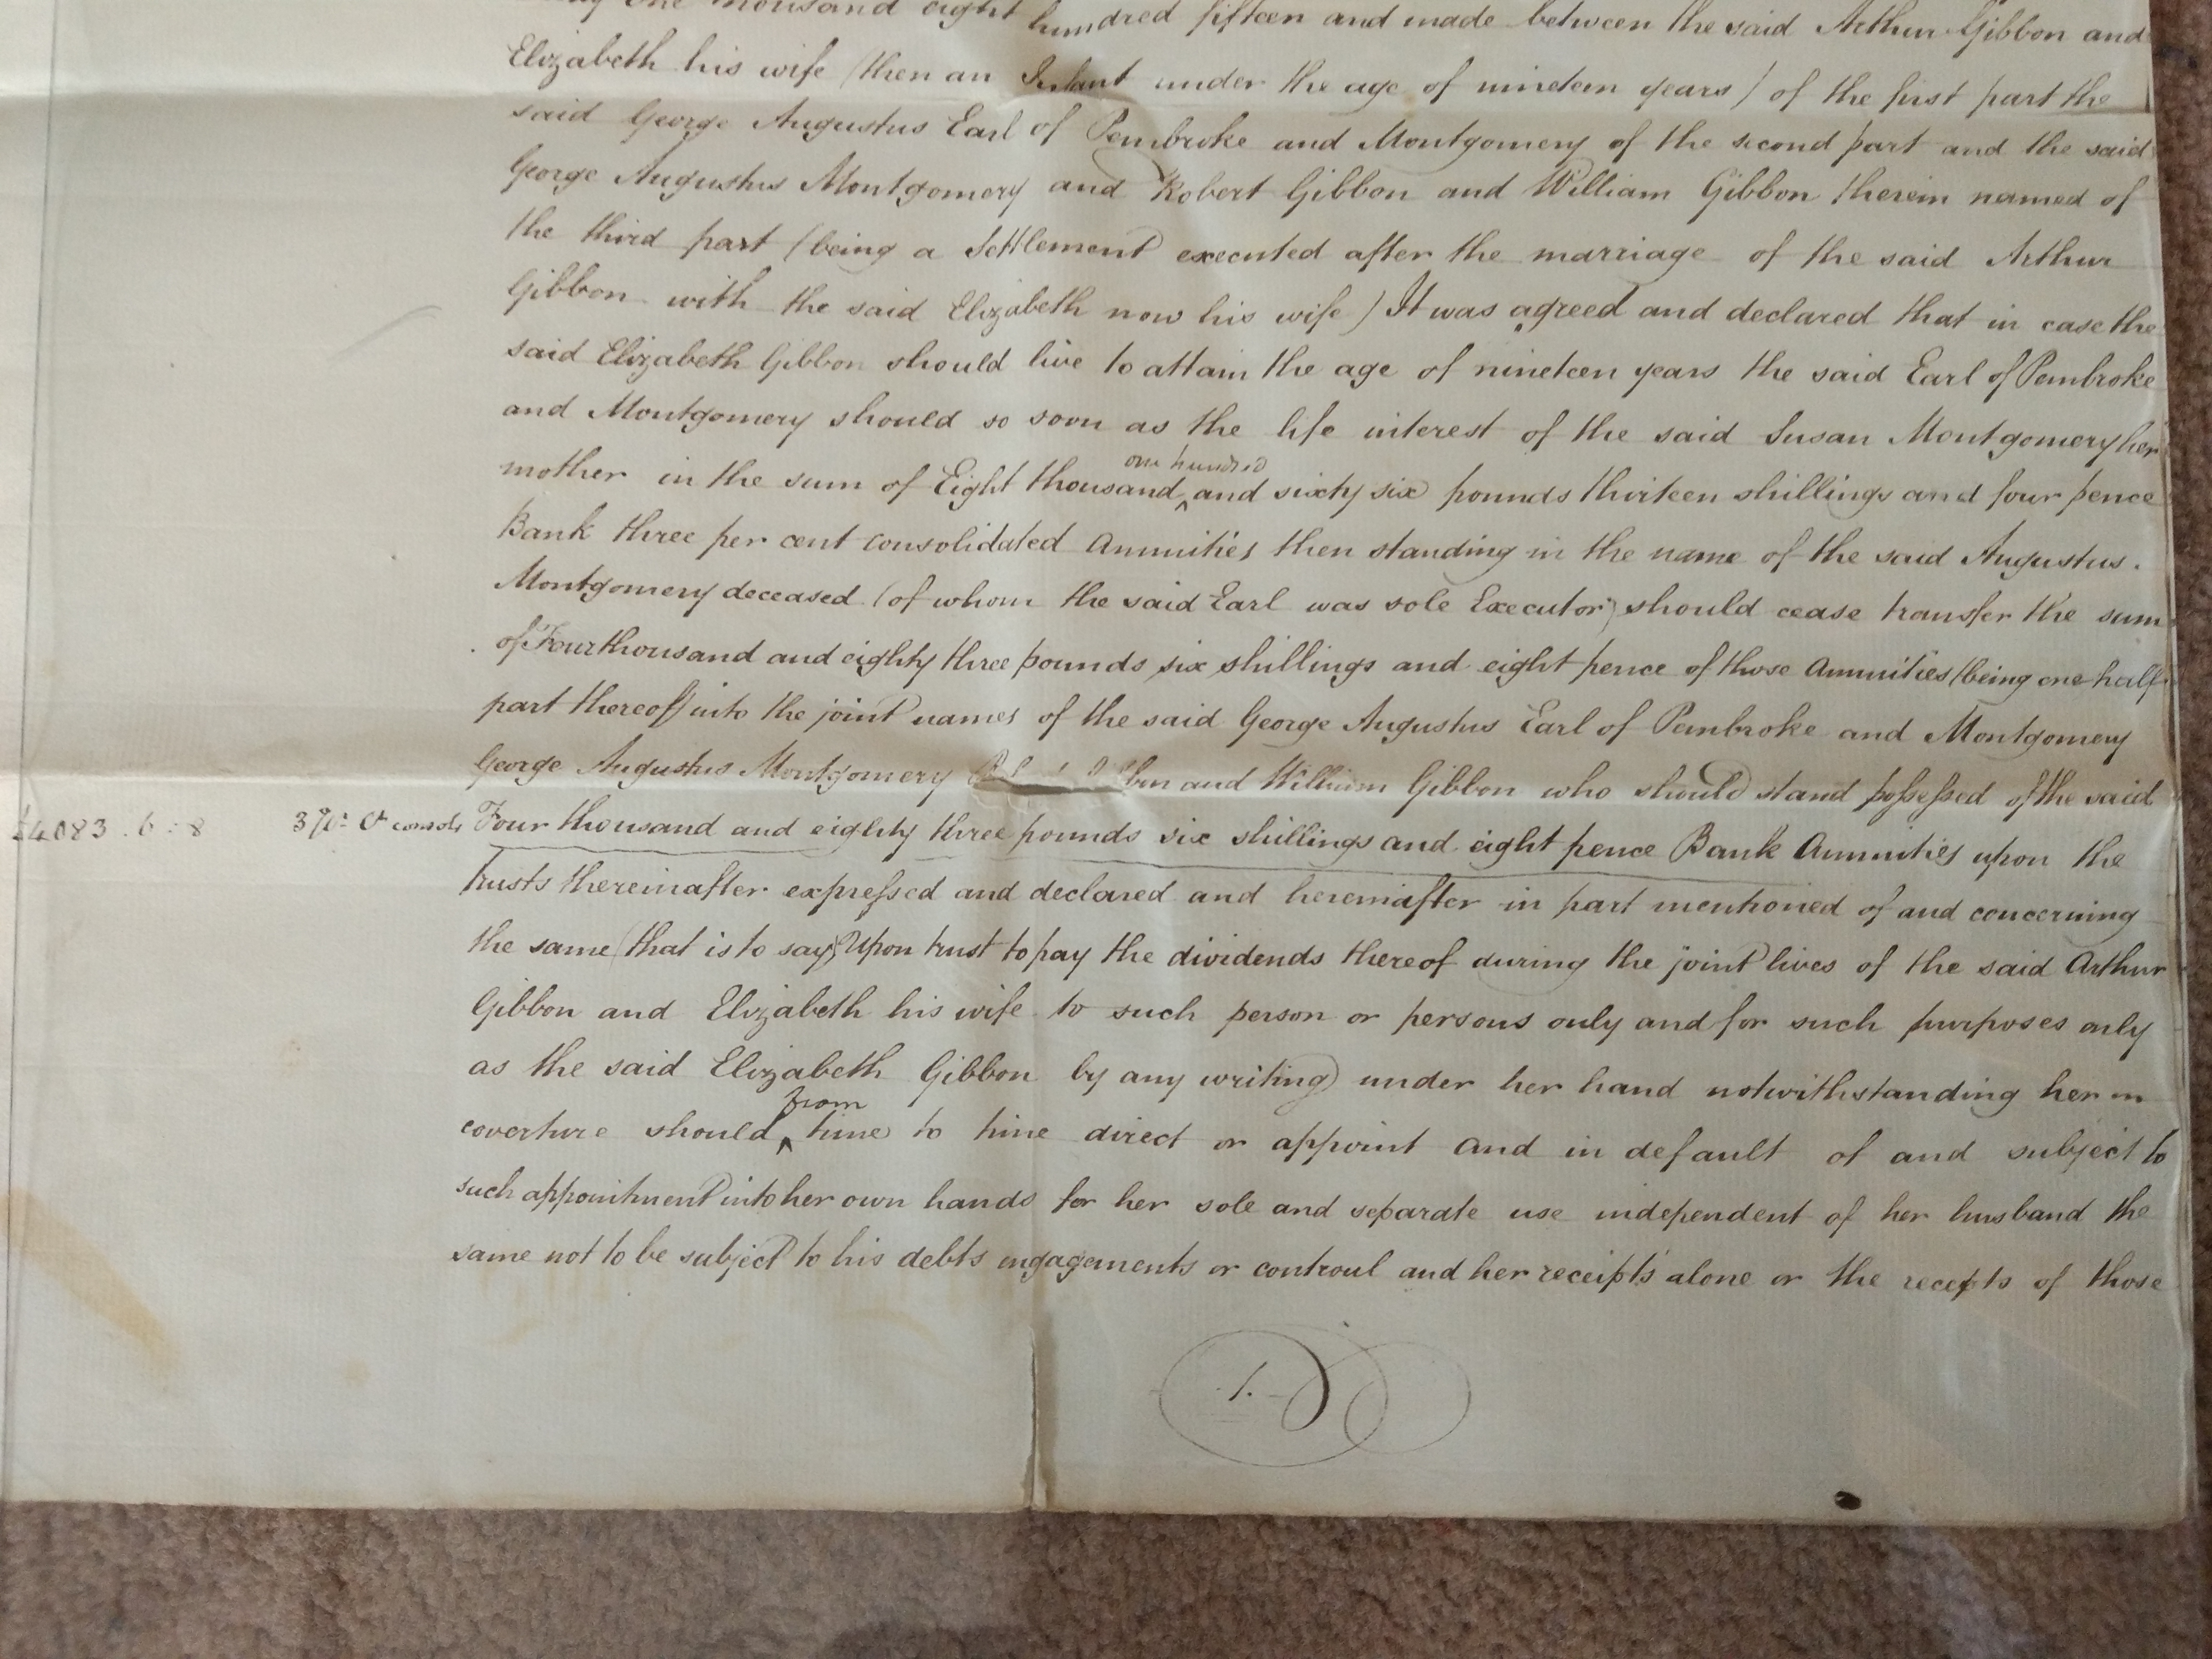 one thousand eight hundred fifteen and made between the said Arthur Gibbon and
Elizabeth his wife (then an Infant under the age of nineteen years) of the first part the
said George Augustus Earl of Pembroke and Montgomery of the second part and the said
George Augustus Montgomery and Robert Gibbon and William Gibbon therein named of
the third part (being a Settlement executed after the marriage of the said Arthur
Gibbon with the said Elizabeth now his wife) It was agreed and declared that in case the
said Elizabeth Gibbon should live to attain the age of nineteen years the said Earl of Pembroke
and Montgomery should so soon as the life interest of the said Susan Montgomery her
mother in the sum of Eight thousand ^one hundred and sixty six pounds thirteen shillings and four pence
Bank three per cent consolidated Annuities then standing in the name of the said Augustus.
Montgomery deceased (of whom the said Earl was sole Executor) should cease transfer the sum
of Four thousand and eighty three pounds six shillings and eight pence of those Annuities (being one half
part thereof) into the joint names of the said George Augustus Earl of Pembroke and Montgomery
George Augustus Montgomery bon and William Gibbon who should stand possessed of the said
£4083.6:8 3 Ct consols Four thousand and eighty three pounds six shillings and eight pence Bank Annuities upon the
Trusts thereinafter expressed and declared and hereinafter in part mentioned of and concerning
the same (that is to say) Upon trust to pay the dividends thereof during the joint lives of the said Arthur
Gibbon and Elizabeth his wife to such person or persons only and for such purposes only
as the said Elizabeth Gibbon by any writing under her hand notwithstanding her
coverture should ^from time to time direct or appoint and in default of and subject to
such appointment into her own hands for her sole and separate use independent of her husband the
same not to be subject to his debts engagements or controul and her receipts alone or the receipts of those
1.